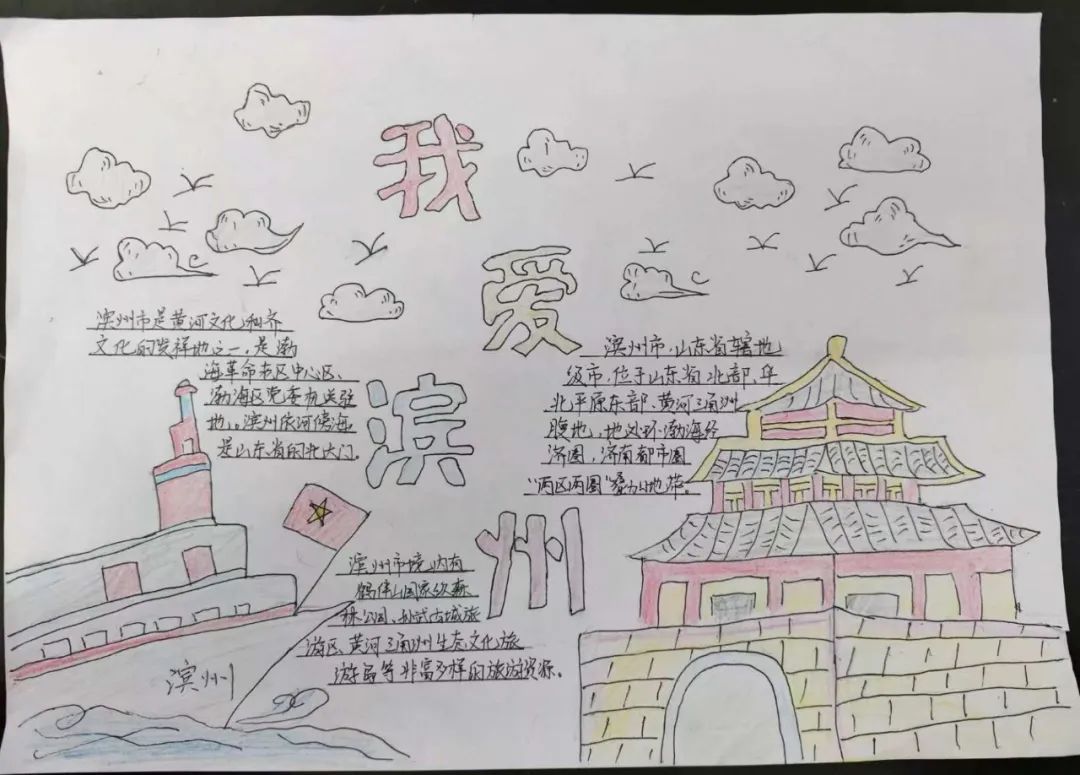 我
爱
滨
州
滨州市是黄河文化和齐
文化的发祥地之一，是渤
海革命老区中心区、
渤海区党委机关驻
地。滨州依河傍海
是山东省的北大门。
滨州市，山东省辖地
级市，位于山东省北部、华
北平原东部、黄河三角洲
腹地，地处环渤海经
济圈，济南都市圈
“两区两圈”叠加地带。
滨州市境内有
鹤伴山国家级森
林公园、古城旅
游区、黄河三角洲生态文化旅
游岛等非富多样的旅游资源。
滨州